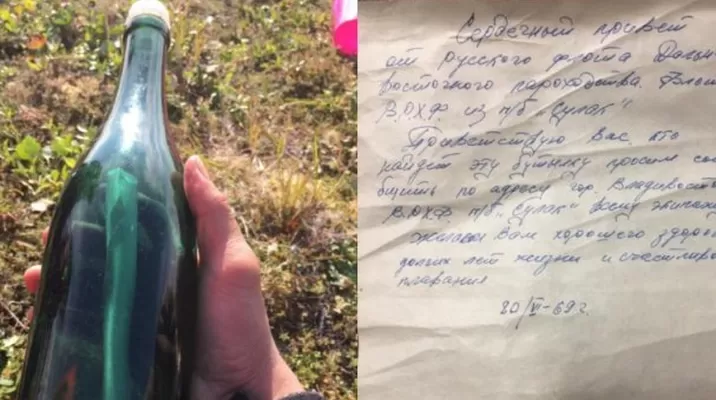 Сердечный привет
от русского флота Дальн
восточного пароходства.
В.О.Х.Ф. из п/б „Сулак"!
Приветствую Вас, кто
найдет эту бутылку просим соо
бщить по адресу гор. Владивосто
В.О.Х.Ф. п/б „Сулак" всему экипажу
желаем Вам хорошего здоро
долгих лет жизни и счастливо
плавания
20/VI-69 г.